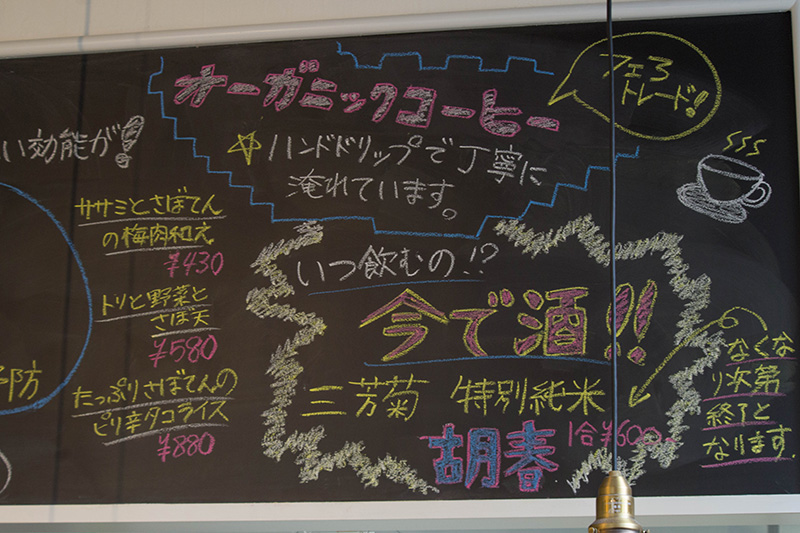 オーガニックコーヒー
フェアトレード!
☆ハンドドリップで丁寧に
淹れています。
い効能が!
ササミとさぼてん
の梅肉和え
¥430
トリと野菜と
さぼ天
¥580
たっぷりさぼてんの
ピリ辛タコライス
¥880
予防
いつ飲むの!?
今で酒!!
三芳菊 特別純米
胡春 1合¥600
なくな
り次第
終了と
なります。